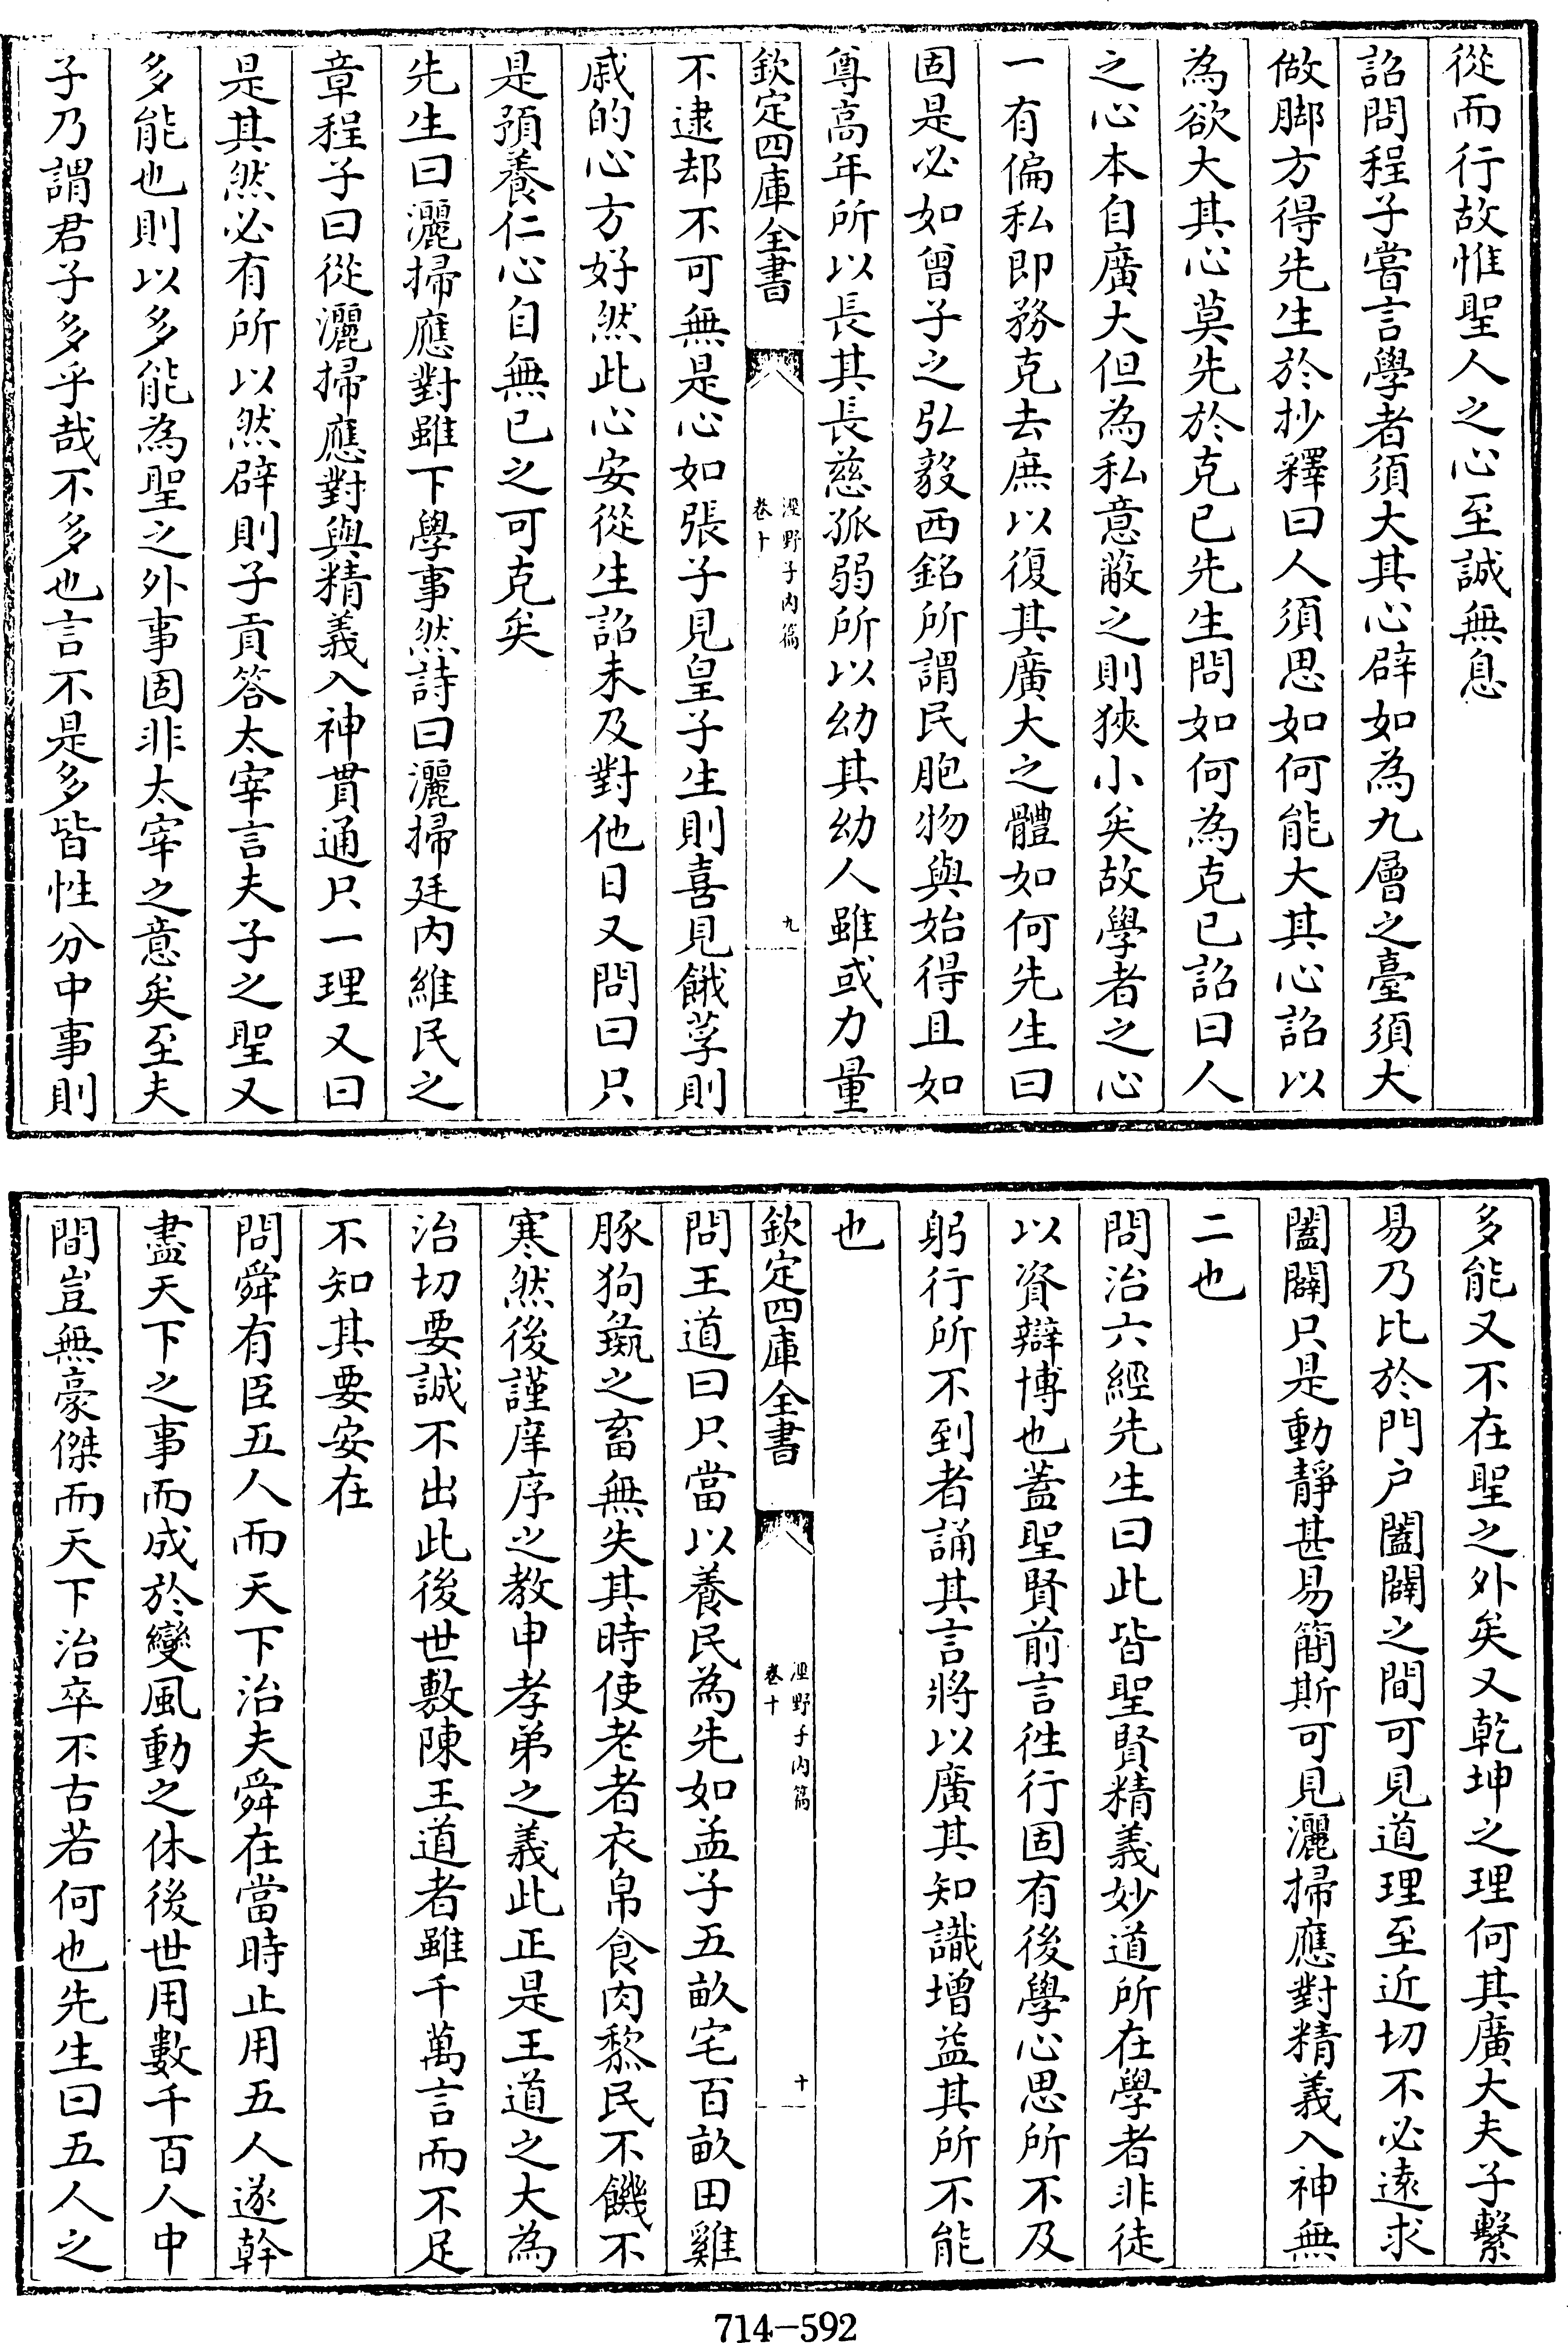 從而行故惟聖人之心至誠無息
詔問程子嘗言學者須大其心辟如為九層之臺須大
做脚方得先生於抄釋曰人須思如何能大其心詔以
為欲大其心莫先於克已先生問如何為克已詔曰人
之心本自廣大但為私意蔽之則狹小矣故學者之心
一有偏私即務克去庶以復其廣大之體如何先生曰
固是必如曾子之弘毅西銘所謂民胞物與始得且如
尊高年所以長其長慈孤弱所以幼其幼人雖或力量
欽定四庫全書
涇野子内篇
卷十
九
不逮却不可無是心如張子見皇子生則喜見餓莩則
戚的心方好然此心安從生詔未及對他日又問曰只
是預養仁心自無已之可克矣
先生曰灑掃應對雖下學事然詩曰灑掃廷内維民之
章程子曰從灑掃應對與精義入神貫通只一理又曰
是其然必有所以然辟則子貢答太宰言夫子之聖又
多能也則以多能為聖之外事固非太宰之意矣至夫
子乃謂君子多乎哉不多也言不是多皆性分中事則
多能又不在聖之外矣又乾坤之理何其廣大夫子繫
易乃比於門户闔闢之間可見道理至近切不必遠求
闔闢只是動靜甚易簡斯可見灑掃應對精義入神無
二也
問治六經先生曰此皆聖賢精義妙道所在學者非徒
以資辯博也蓋聖賢前言徃行固有後學心思所不及
躬行所不到者誦其言將以廣其知識增益其所不能
也
欽定四庫全書
涇野子内篇
卷十
十
問王道曰只當以養民為先如孟子五畝宅百畝田雞
豚狗彘之畜無失其時使老者衣帛食肉黎民不饑不
寒然後謹庠序之教申孝弟之義此正是王道之大為
治切要誠不出此後世敷陳王道者雖千萬言而不足
不知其要安在
問舜有臣五人而天下治夫舜在當時止用五人遂幹
盡天下之事而成於變風動之休後世用數千百人中
間豈無豪傑而天下治卒不古若何也先生曰五人之
714-592